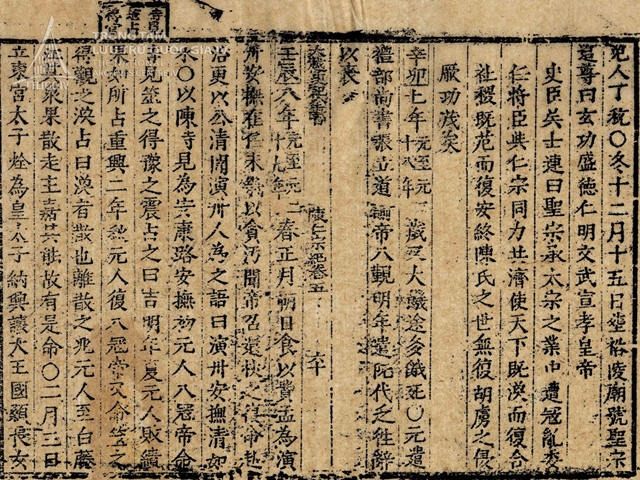 兇人丁祝〇冬十二月十五日塟裕陵廟號聖宗
追尊曰玄功盛德仁明文武宣孝皇帝
史臣吳士連曰聖宗承太宗之業中遭冦亂委
仁將臣與仁宗同力共濟使天下既渙而復合
社稷既危而復安終陳氏之世無復胡虜之侵
厥功茂矣
辛卯七年元至元二十八年歲又大饑途多餓死〇元遣
禮部尚書張立道諭帝入覲明年遣阮代乏徃辭
以喪
陳仁宗紀卷五 六十
壬辰八年元至元二十九年春正月朔日食以費孟為演
州安撫在任未幾以貪汚聞帝召還杖之命赴
治更以公清聞演州人為之語曰演州安撫清如
水〇以陳時見為天康路安撫初元人入冦帝命
時見筮之得豫之震占之曰吉明年夏元人敗績
果如所占重興二年秋元人復入冦帝又命筮之
得觀之渙占曰渙者散也離散之兆元人至白藤
其衆果散走上嘉其能故有是命〇二月三日
立東宮太子烇為皇太子納興讓大王國顙長女
TRUNG TÂM
LƯU TRỮ QUỐC GIA IV